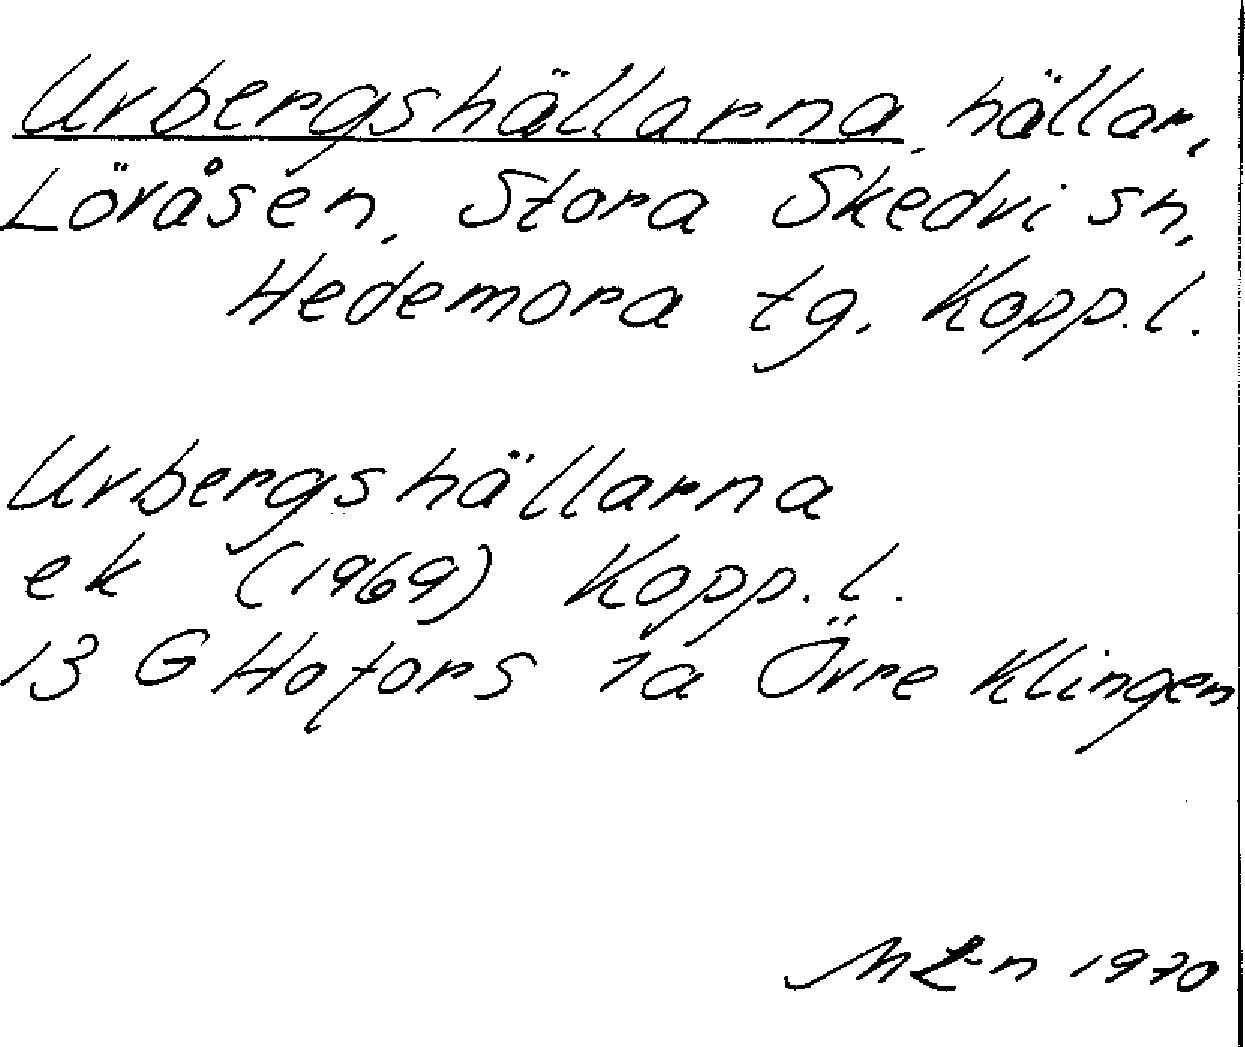 Urbergshällarna, hällar,
Lövåsen, Stora Skedvi sn,
Hedemora tg. Kopp.l.
Urbergshällarna
ek (1969) Kopp.l.
13 G Hofors 1a Övre Klingen
M L-n 1970